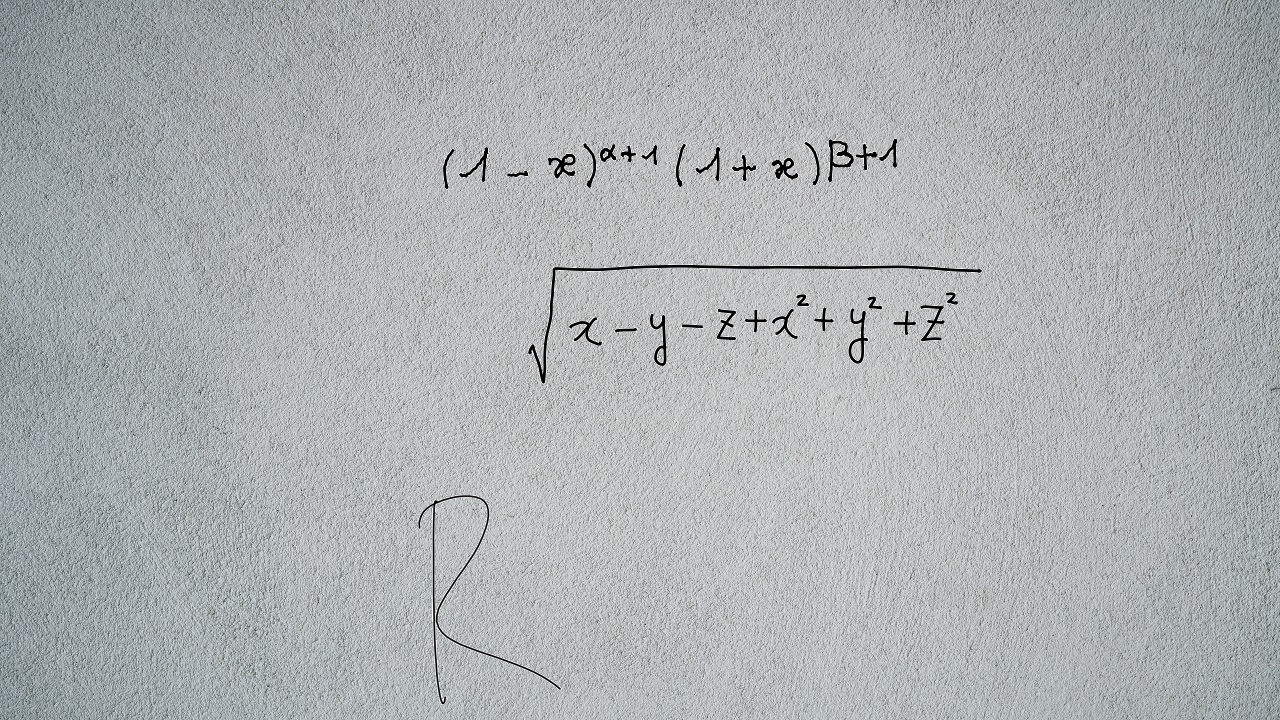 (1 - x)^{α+1} (1 + x)^{β+1}
\sqrt{x - y - z + x^2 + y^2 + z^2}
R